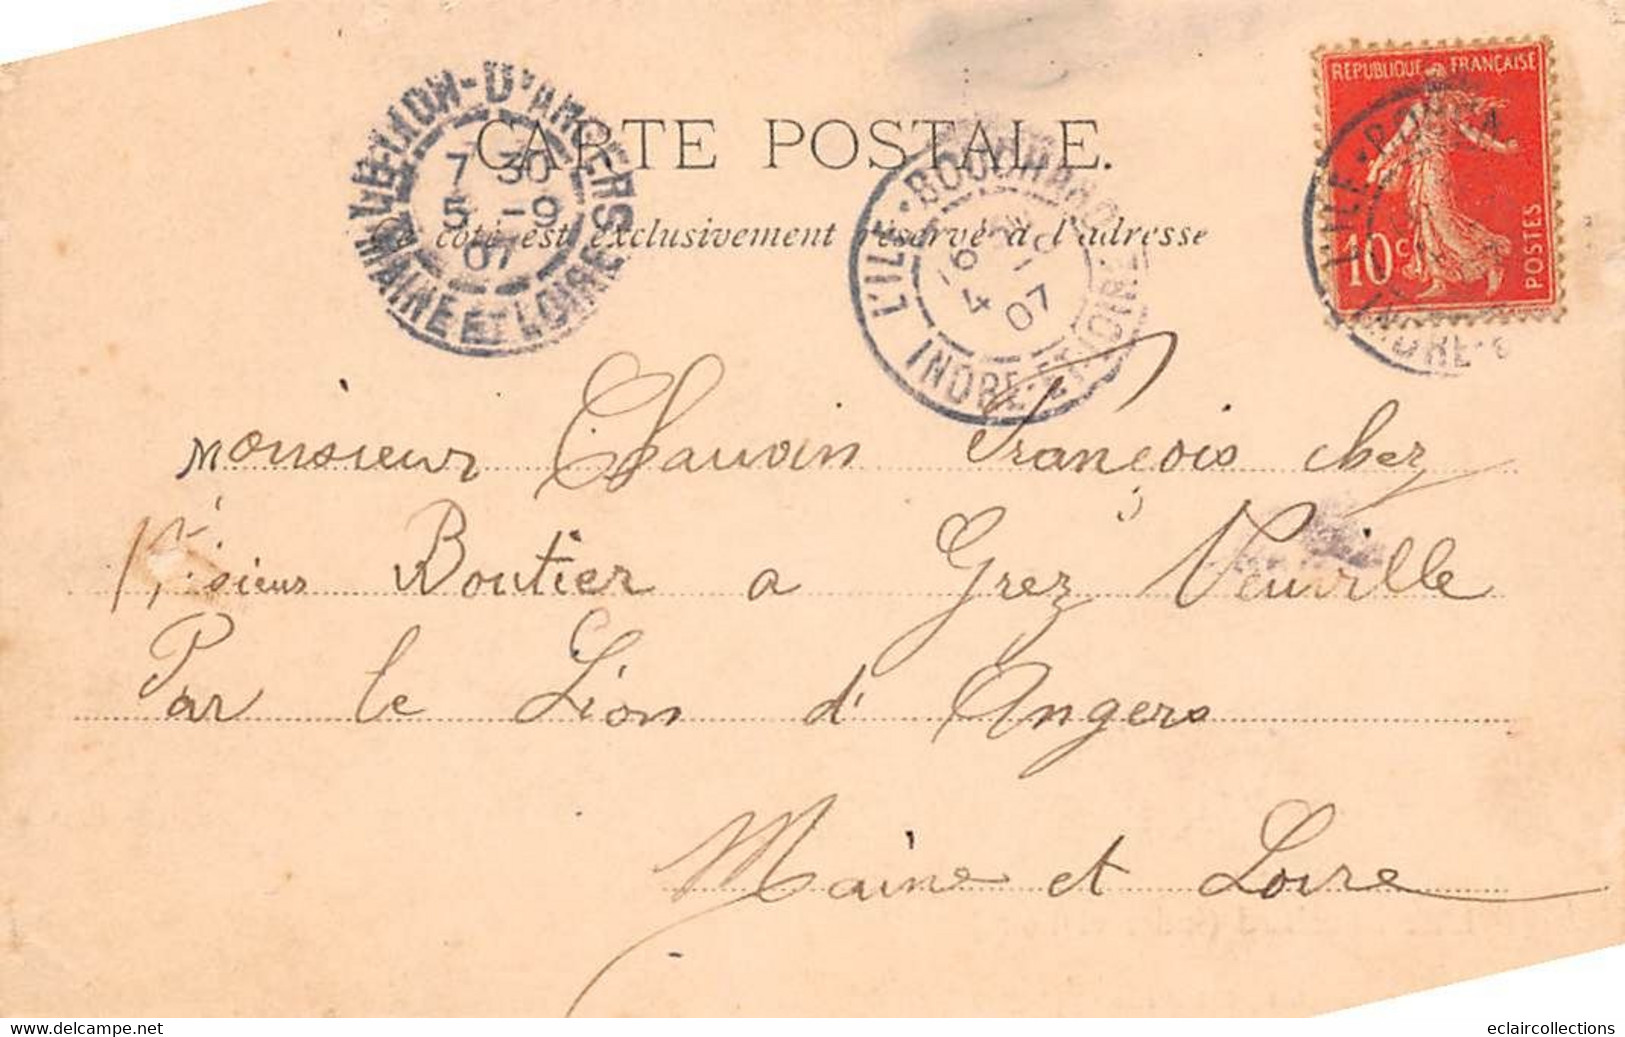 RÉPUBLIQUE FRANÇAISE
10c
POSTES
CARTE POSTALE.
Ce côté est exclusivement réservé à l'adresse
LE LION-D'ANGERS
7 30
5 -9
07
MAINE ET LOIRE
L'ILE-BOUCHARD
4 - 9
07
INDRE-ET-LOIRE
L'ILE-BOUCHA
INDRE-E
Monsieur Chauvin François chez
Msieur Boutier a Grez Neuville
Par le Lion d'Angers
Maine et Loire
www.delcampe.net
eclaircollections